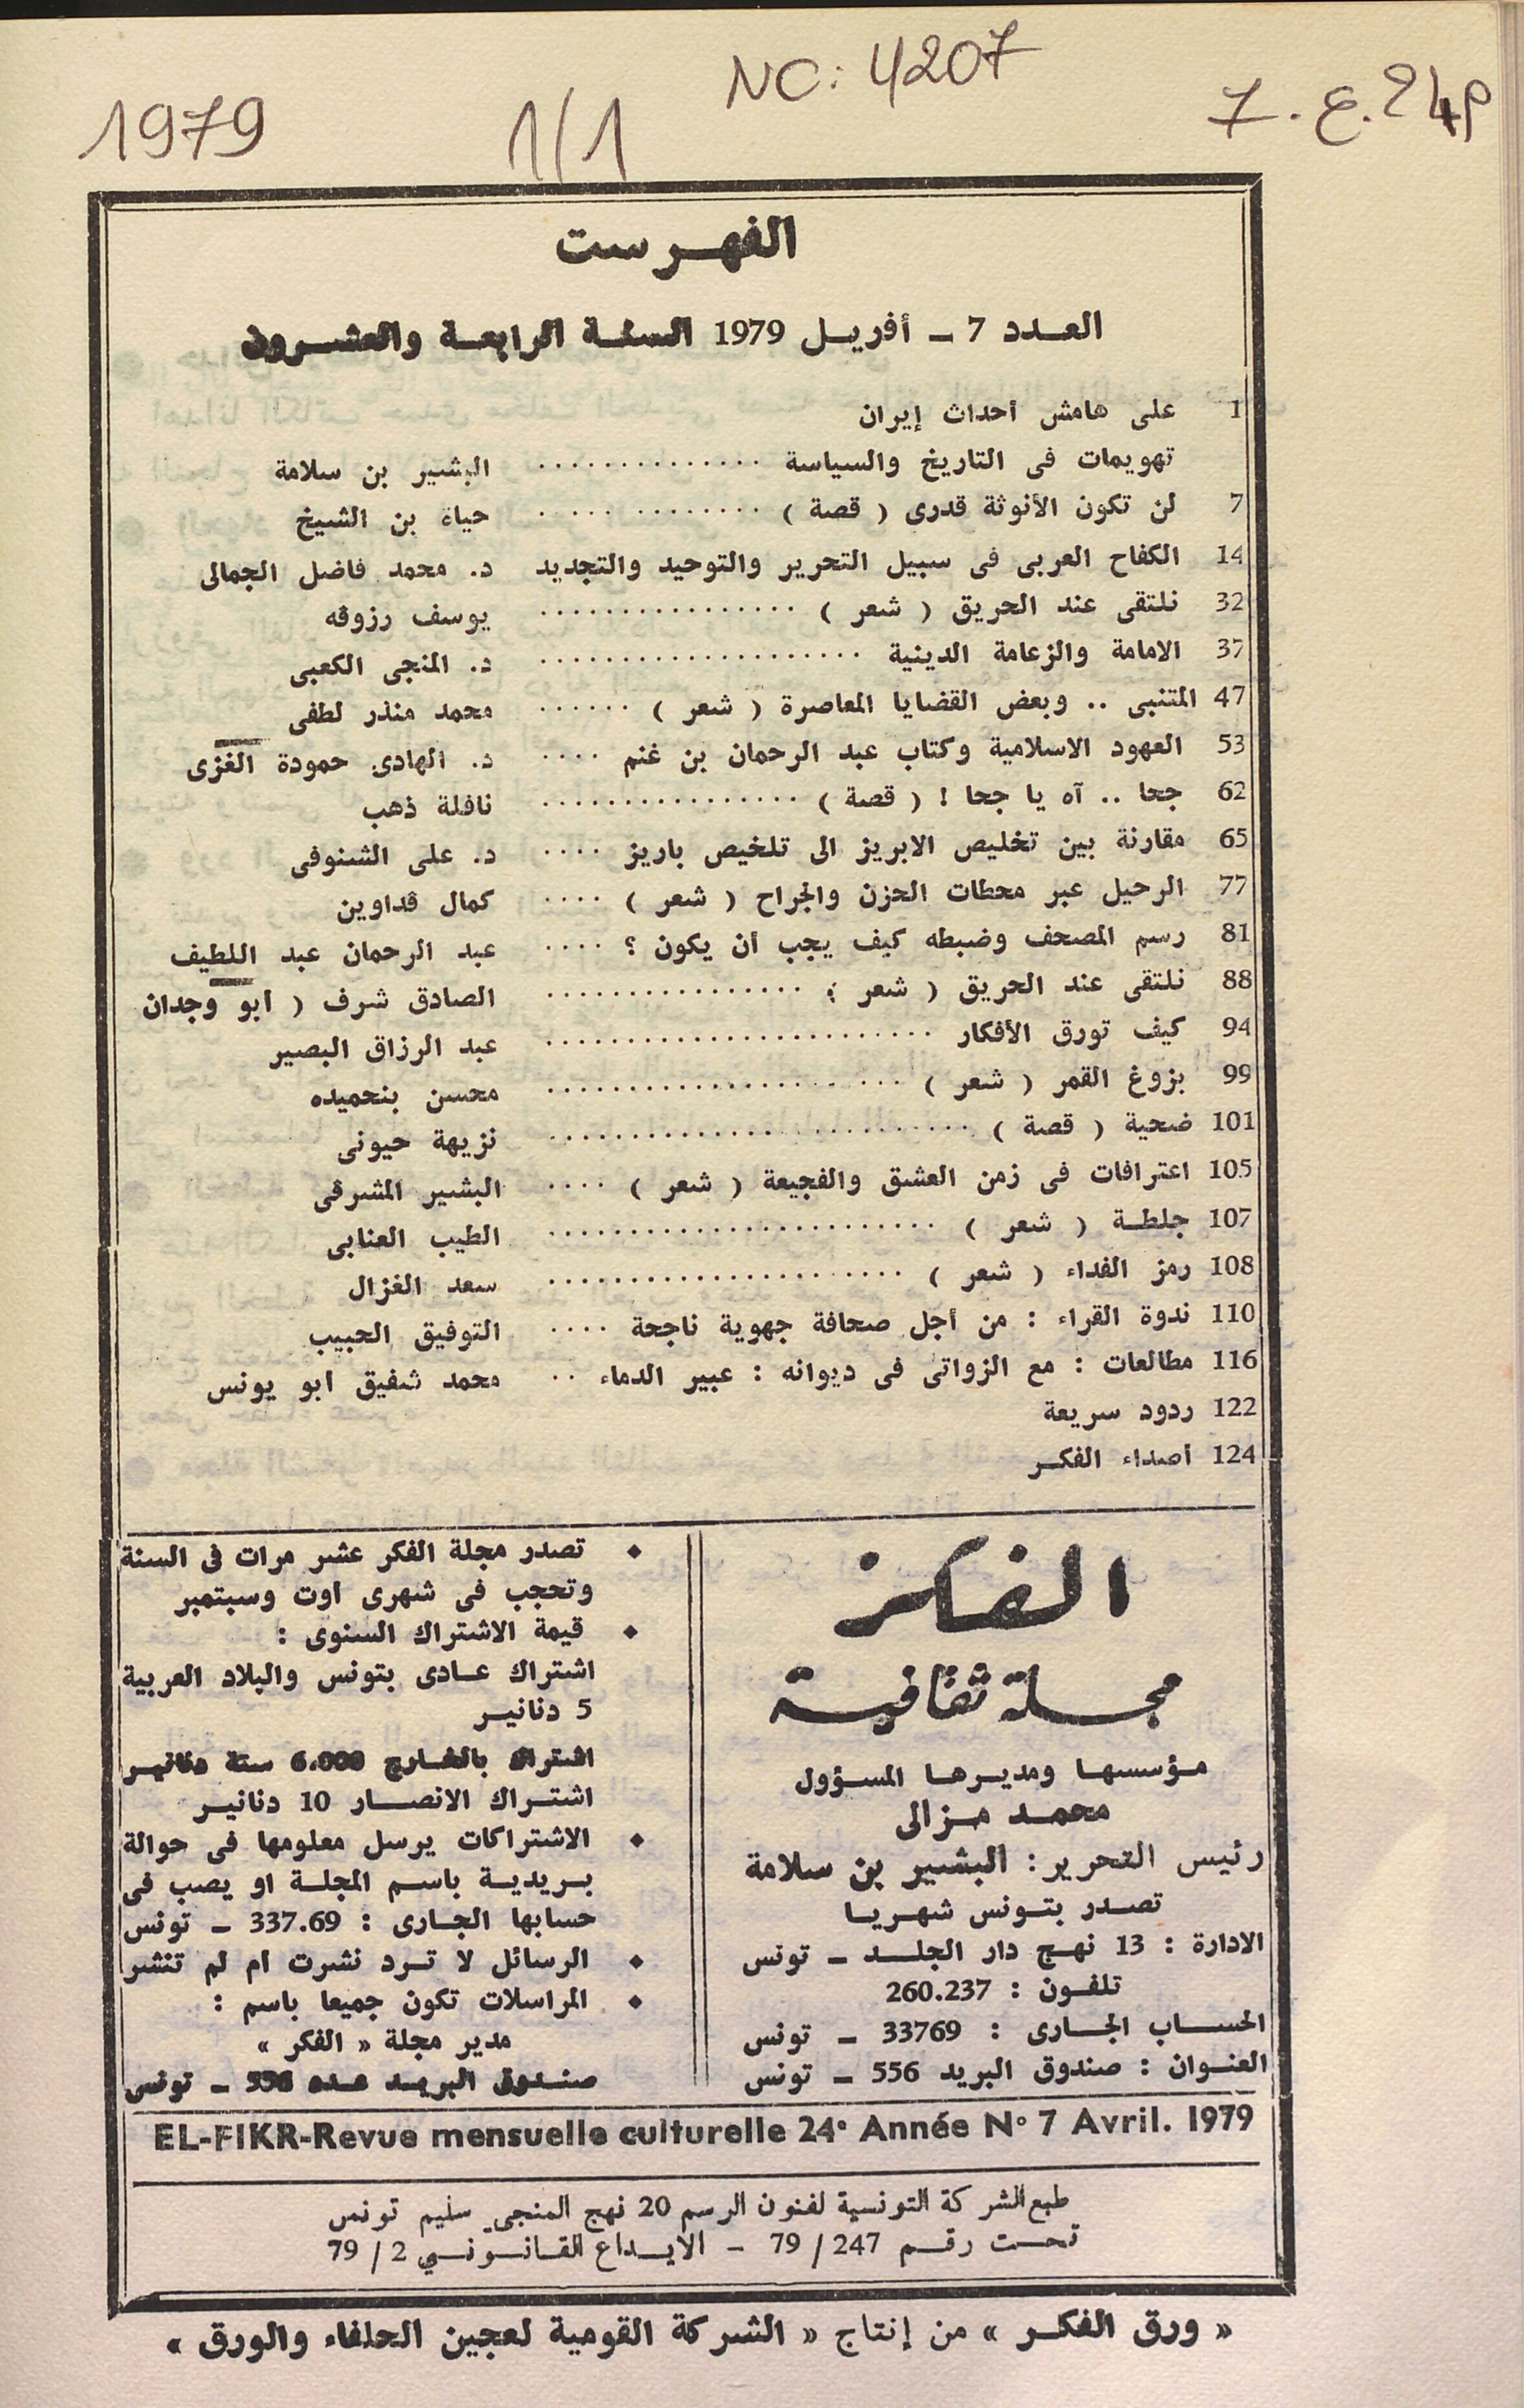 NC: 4207
1979
1/1
7. ع. 24م
الفهرست
العدد 7 ــ أفريل 1979 السنة الرابعة والعشرون
1 على هامش أحداث إيران
تهويمات فى التاريخ والسياسة .............. البشير بن سلامة
7 لن تكون الأنوثة قدرى ( قصة ) .............. حياة بن الشيخ
14 الكفاح العربى فى سبيل التحرير والتوحيد والتجديد د. محمد فاضل الجمالى
32 نلتقى عند الحريق ( شعر ) ................ يوسف رزوقه
37 الامامة والزعامة الدينية .................... د. المنجى الكعبى
47 المتنبى .. وبعض القضايا المعاصرة ( شعر ) ...... محمد منذر لطفى
53 العهود الاسلامية وكتاب عبد الرحمان بن غنم .... د. الهادى حمودة الغزى
62 جحا .. آه يا جحا ! ( قصة ) ................ نافلة ذهب
65 مقارنة بين تخليص الابريز الى تلخيص باريز .... د. على الشنوفى
77 الرحيل عبر محطات الحزن والجراح ( شعر ) .... كمال قداوين
81 رسم المصحف وضبطه كيف يجب أن يكون ؟ .... عبد الرحمان عبد اللطيف
88 نلتقى عند الحريق ( شعر ) ................ الصادق شرف ( ابو وجدان
94 كيف تورق الأفكار ........................ عبد الرزاق البصير
99 بزوغ القمر ( شعر ) ...................... محسن بنحميده
101 ضحية ( قصة ) .......................... نزيهة حيونى
105 اعترافات فى زمن العشق والفجيعة ( شعر ) .... البشير المشرقى
107 جلطـة ( شعر ) ........................ الطيب العنابى
108 رمز الفداء ( شعر ) ...................... سعد الغزال
110 ندوة القراء : من أجل صحافة جهوية ناجحة .... التوفيق الحبيب
116 مطالعات : مع الزواتى فى ديوانه : عبير الدماء .. محمد شفيق ابو يونس
122 ردود سريعة
124 أصداء الفكـر
الفكر
مجـلة ثقافيـة
مـؤسسهـا ومديـرهـا المسـؤول
محمـد مـزالى
رئيس التحرير : البشير بن سلامة
تصـدر بتـونس شهـريـا
الادارة : 13 نهـج دار الجلـد ــ تونس
تلفـون : 260.237
الحسـاب الجـارى : 33769 ــ تونس
العنـوان : صندوق البريد 556 ــ تونس
♦ تصدر مجلة الفكر عشر مرات فى السنة
وتحجب فى شهرى اوت وسبتمبر
♦ قيمة الاشتراك السنوى :
اشتراك عـادى بتونس والبلاد العربية
5 دنانيـر
اشتراك بالخـارج 6.000 ستة دنانيـر
اشتـراك الانصـار 10 دنانيـر
♦ الاشتراكات يرسل معلومها فى حوالة
بـريديـة باسـم المجلـة او يصب فى
حسابها الجـارى : 337.69 ــ تونس
♦ الرسائل لا تـرد نشرت ام لم تنشر
♦ المراسلات تكون جميعا باسم :
مدير مجلة « الفكر »
صنـدوق البريـد عـدد 556 ــ تونس
EL-FIKR-Revue mensuelle culturelle 24e Année N° 7 Avril. 1979
طبع الشركة التونسية لفنون الرسم 20 نهج المنجي سليم تونس
تحـت رقـم 247 / 79 ــ الايـداع القـانـونـي 2 / 79
« ورق الفكـر » من إنتاج « الشركة القومية لعجين الحلفاء والورق »